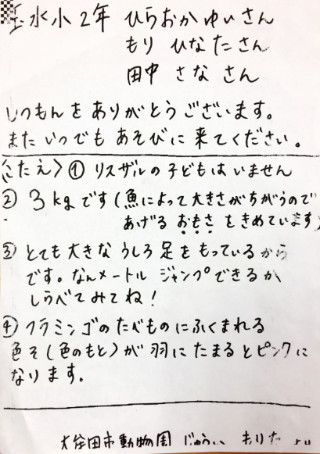 玉水小2年 ひらおかゆいさん
もり ひなたさん
田中 さな さん
しつもんをありがとうございます。
またいつでもあそびに来てください。
〈こたえ〉① リスザルの子どもはいません
② 3kgです(魚によって大きさがちがうので
あげるおもさをきめています)
③ とても大きなうしろ足をもっているから
です。なんメートルジャンプできるか
しらべてみてね!
④ フラミンゴのたべものにふくまれる
色そ(色のもと)が羽にたまるとピンクに
なります。
大牟田市動物園 じゅうい